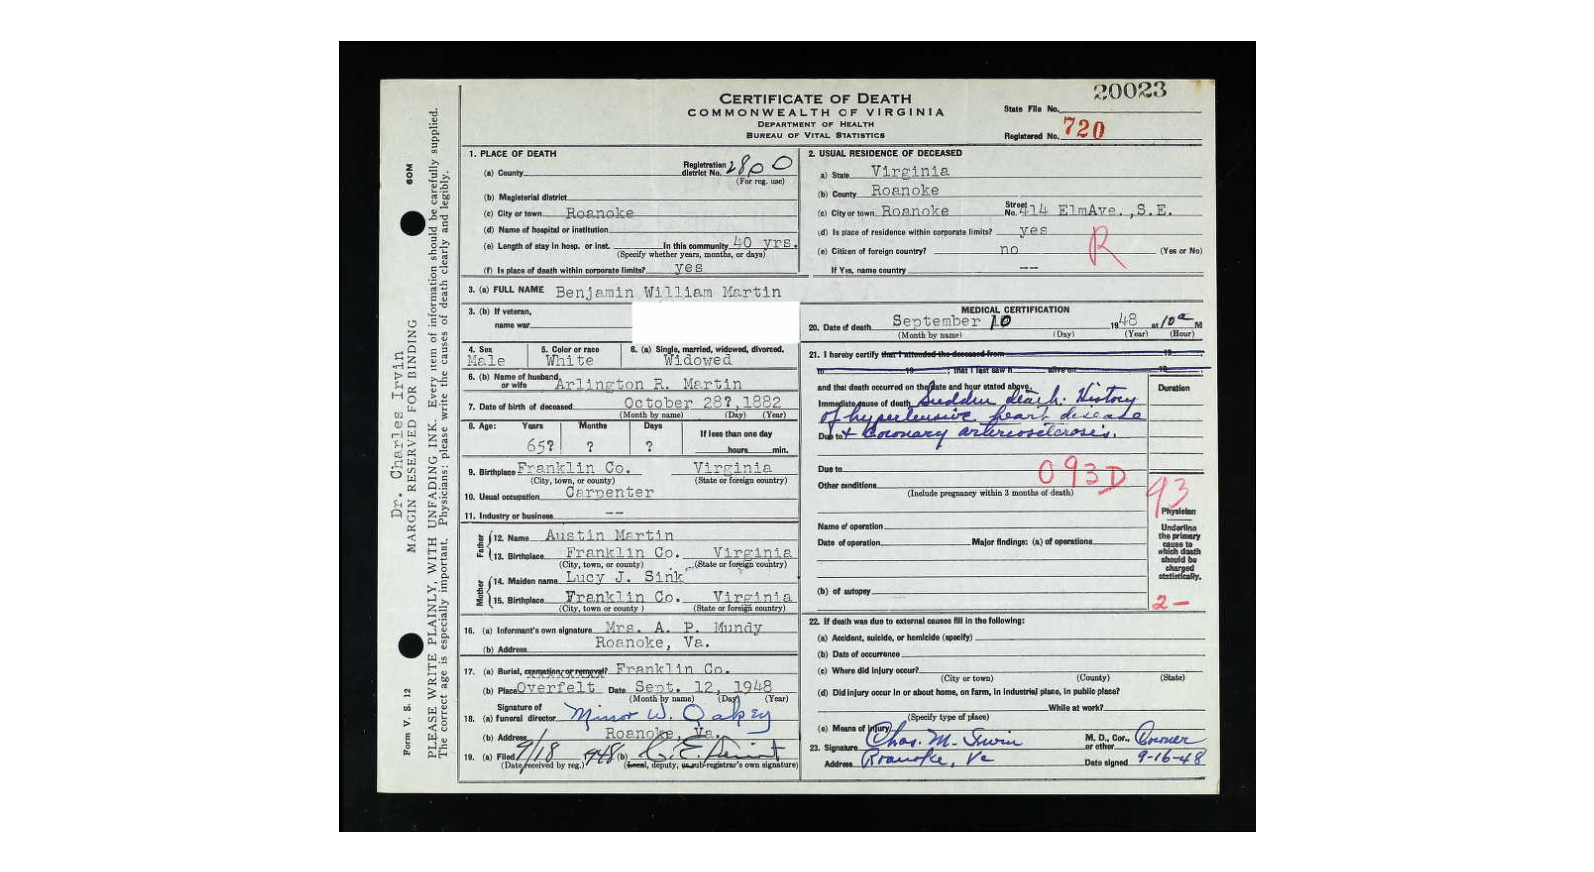 20023
CERTIFICATE OF DEATH
COMMONWEALTH OF VIRGINIA
DEPARTMENT OF HEALTH
BUREAU OF VITAL STATISTICS
State File No.
Registered No. 720
1. PLACE OF DEATH
(a) County
Registration district No. 2800
(For reg. use)
(b) Magisterial district
(c) City or town Roanoke
(d) Name of hospital or institution
(e) Length of stay in hosp. or inst. In this community 40 yrs.
(Specify whether years, months, or days)
(f) Is place of death within corporate limits? yes
2. USUAL RESIDENCE OF DECEASED
a) State Virginia
(b) County Roanoke
(c) City or town Roanoke Street No. 414 ElmAve.,S.E.
(d) Is place of residence within corporate limits? yes
(e) Citizen of foreign country? no (Yes or No)
R
If Yes, name country --
3. (a) FULL NAME Benjamin William Martin
3. (b) If veteran,
name war
4. Sex Male
5. Color or race White
6. (a) Single, married, widowed, divorced. Widowed
6. (b) Name of husband or wife Arlington R. Martin
7. Date of birth of deceased October 28?,1882
(Month by name) (Day) (Year)
8. Age: Years Months Days If less than one day
65? ? ? hours min.
9. Birthplace Franklin Co. Virginia
(City, town, or county) (State or foreign country)
10. Usual occupation Carpenter
11. Industry or business --
Father
12. Name Austin Martin
13. Birthplace Franklin Co. Virginia
(City, town, or county) (State or foreign country)
Mother
14. Maiden name Lucy J. Sink
15. Birthplace Franklin Co. Virginia
(City, town or county) (State or foreign country)
16. (a) Informant's own signature Mrs. A. P. Mundy
(b) Address Roanoke, Va.
17. (a) Burial, cremation, or removal? Franklin Co.
(b) Place Overfelt Date Sept. 12, 1948
(Month by name) (Day) (Year)
Signature of
18. (a) funeral director Minor W. Oakey
(b) Address Roanoke, Va.
19. (a) Filed 9/18 1948 (b) C. E.
(Date received by reg.) (Local, deputy, or sub-registrar's own signature)
MEDICAL CERTIFICATION
20. Date of death September 10 1948 at 10a M
(Month by name) (Day) (Year) (Hour)
21. I hereby certify that I attended the deceased from 19
to 19 ; that I last saw h alive on 19
and that death occurred on the date and hour stated above. Duration
Immediate cause of death Sudden death. History
of hypertensive heart disease
Due to + Coronary arteriosclerosis.
Due to
093D
Other conditions
(Include pregnancy within 3 months of death)
93
Name of operation
Date of operation Major findings: (a) of operations
(b) of autopsy
Physician
Underline
the primary
cause to
which death
should be
charged
statistically.
2-
22. If death was due to external causes fill in the following:
(a) Accident, suicide, or homicide (specify)
(b) Date of occurrence
(c) Where did injury occur?
(City or town) (County) (State)
(d) Did injury occur in or about home, on farm, in industrial place, in public place?
While at work?
(Specify type of place)
(e) Means of injury
23. Signature Chas. M. Irvin M. D., Cor., or other Coroner
Address Roanoke, Va Date signed 9-16-48
Dr. Charles Irvin
MARGIN RESERVED FOR BINDING
60M
Form V. S. 12
PLEASE WRITE PLAINLY, WITH UNFADING INK. Every item of information should be carefully supplied.
The correct age is especially important. Physicians: please write the causes of death clearly and legibly.